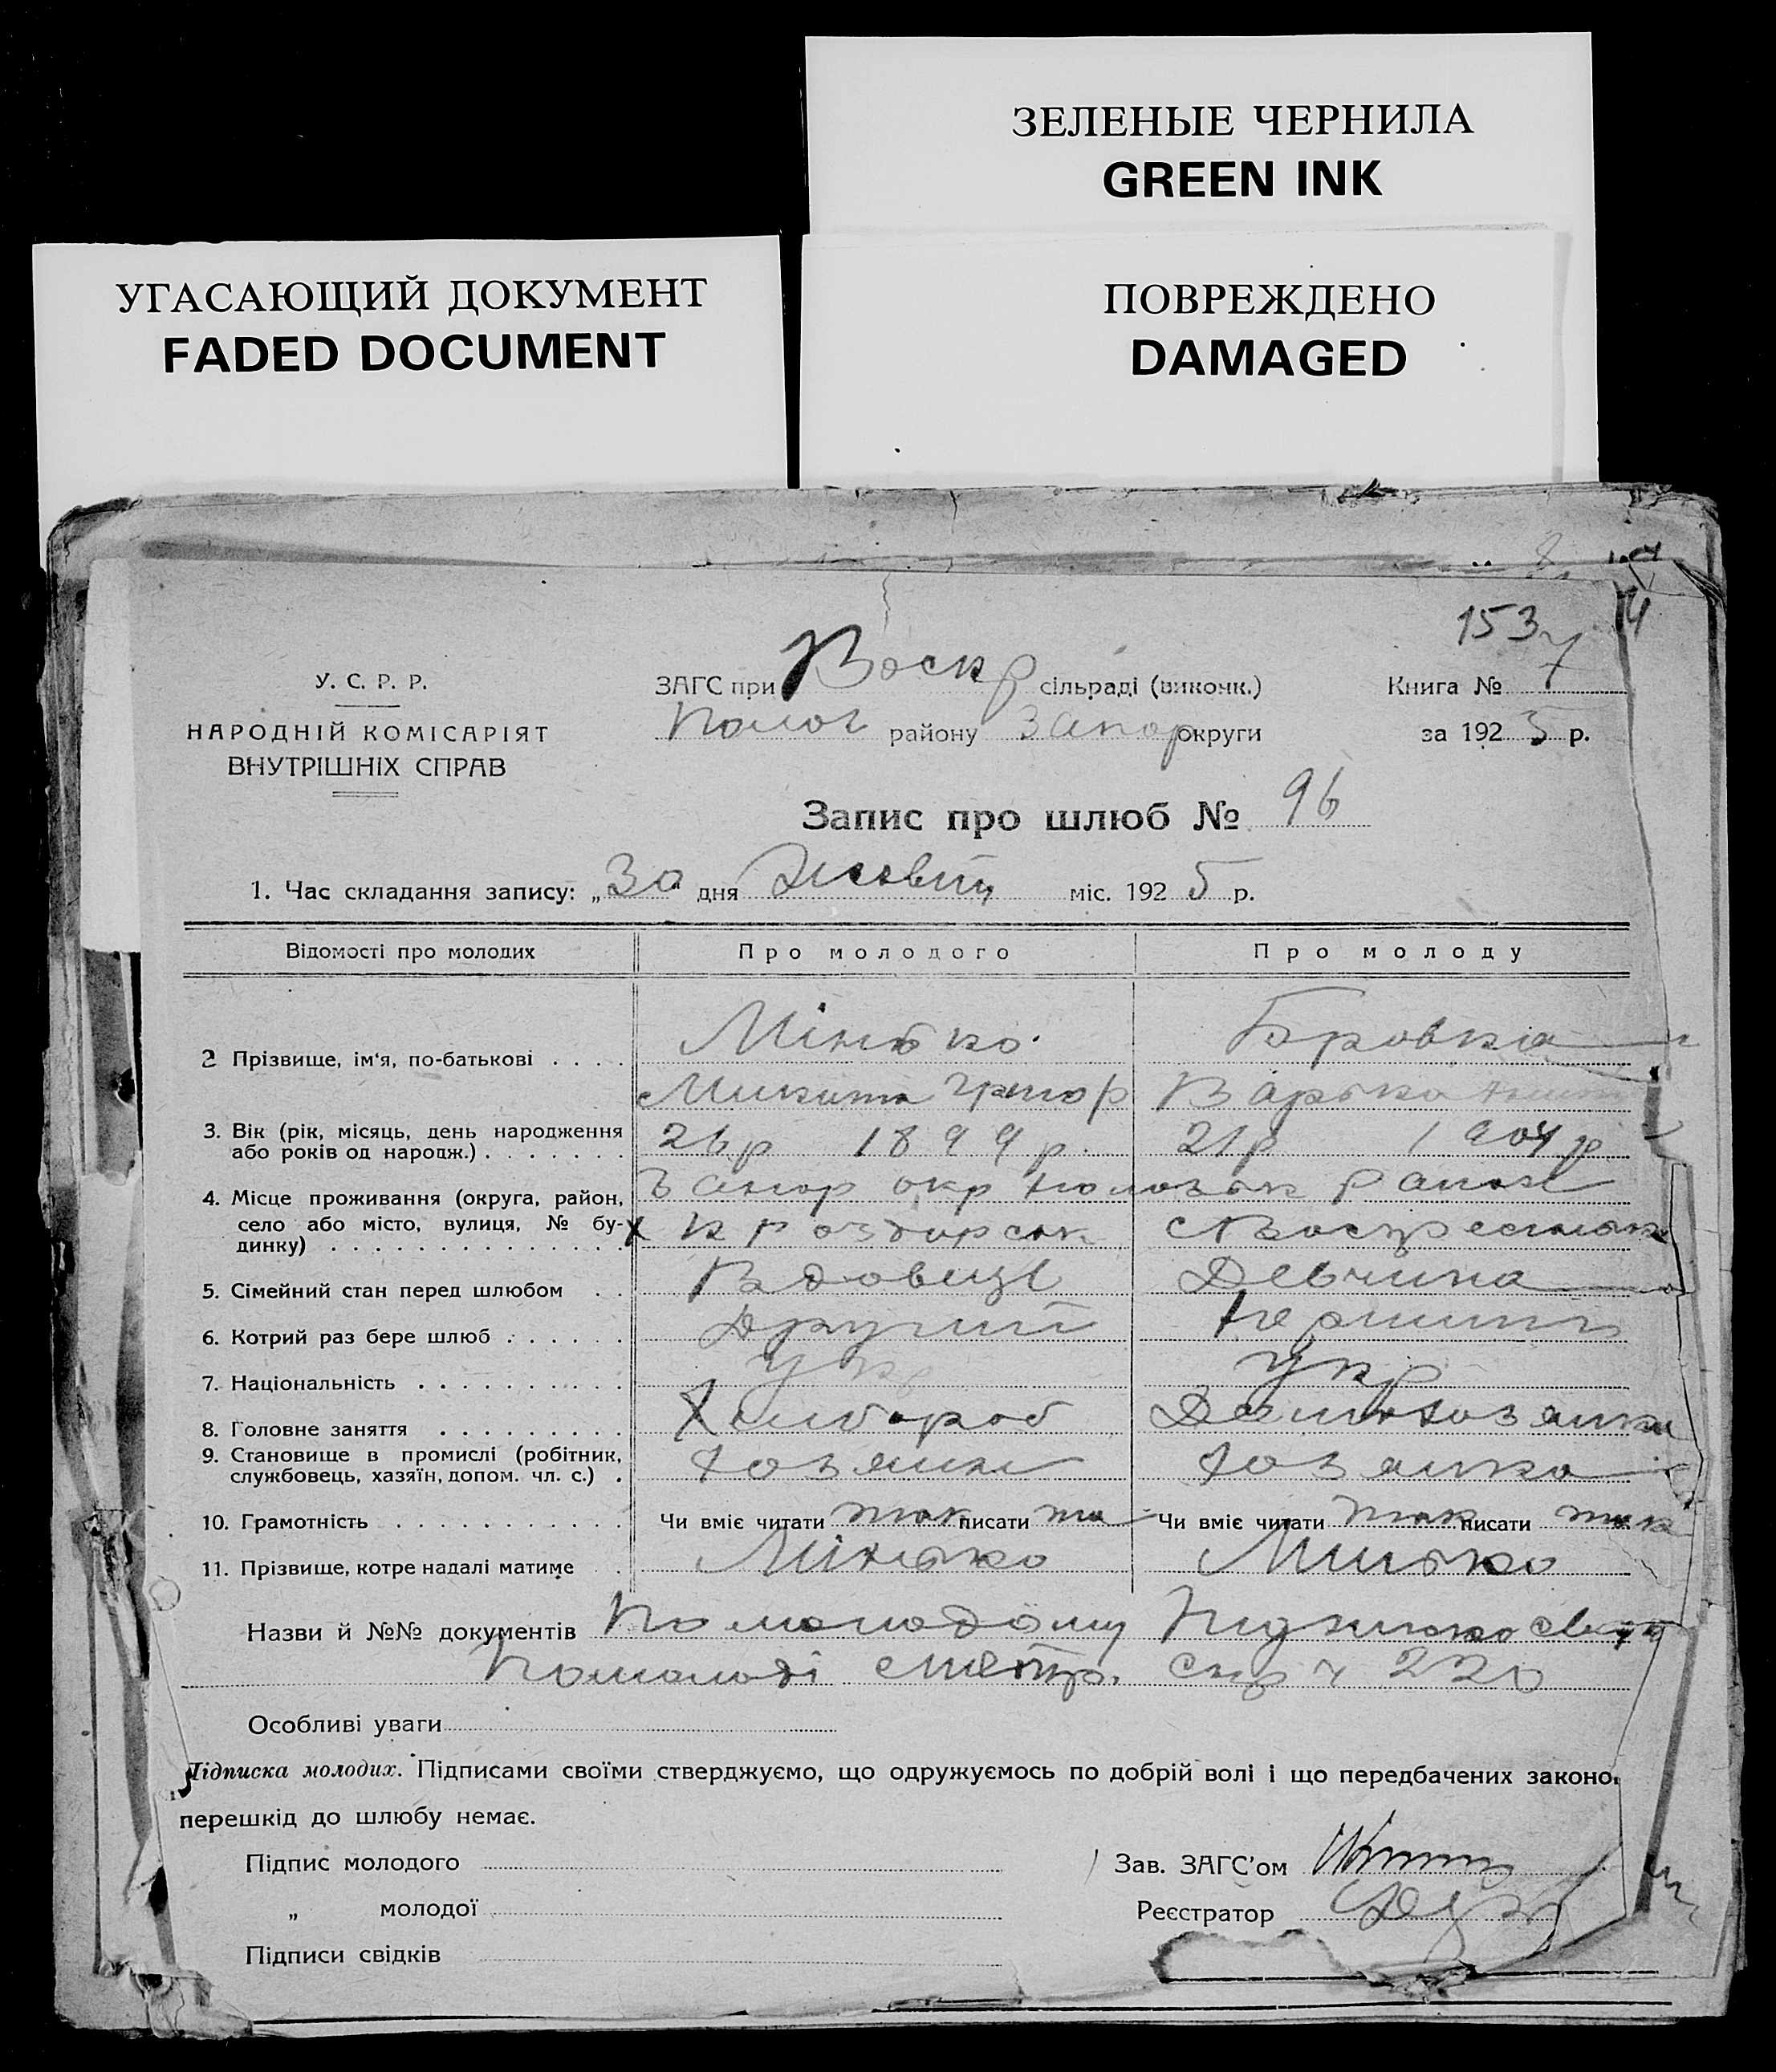 ЗЕЛЕНЫЕ ЧЕРНИЛА
GREEN INK
УГАСАЮЩИЙ ДОКУМЕНТ
FADED DOCUMENT
ПОВРЕЖДЕНО
DAMAGED
153
У. С. Р. Р.
НАРОДНІЙ КОМІСАРІЯТ
ВНУТРІШНІХ СПРАВ
ЗАГС при Воскр сільраді (виконк.) Книга № 7
Полог району Запор округи за 1925 р.
Запис про шлюб № 96
1. Час складання запису: „30" дня міс. 1925 р.
Відомості про молодих Про молодого Про молоду
2 Прізвище, ім'я, по-батькові . . . . Мінько Бровка
Микита Григор Варька
3. Вік (рік, місяць, день народження або років од народж.) . . . . . . . 26р 1899 р. 21р 1904 р
4. Місце проживання (округа, район, село або місто, вулиця, № будинку) . . . . . . . . . . . . . . Запор окр район
5. Сімейний стан перед шлюбом . . Вдовець Девчина
6. Котрий раз бере шлюб . . . . . . Другий Перший
7. Національність . . . . . . . . . . Укр Укр
8. Головне заняття . . . . . . . . . Хлібороб
9. Становище в промислі (робітник, службовець, хазяїн, допом. чл. с.) . Хозяин Хозяйка
10. Грамотність . . . . . . . . . . . . Чи вміє читати так писати та Чи вміє читати так писати так
11. Прізвище, котре надалі матиме . . Мінько Минько
Назви й №№ документів По молодому
По молоді метр. 220
Особливі уваги
Підписка молодих. Підписами своїми стверджуємо, що одружуємось по добрій волі і що передбачених законо
перешкід до шлюбу немає.
Підпис молодого Зав. ЗАГС'ом
„ молодої Реєстратор
Підписи свідків